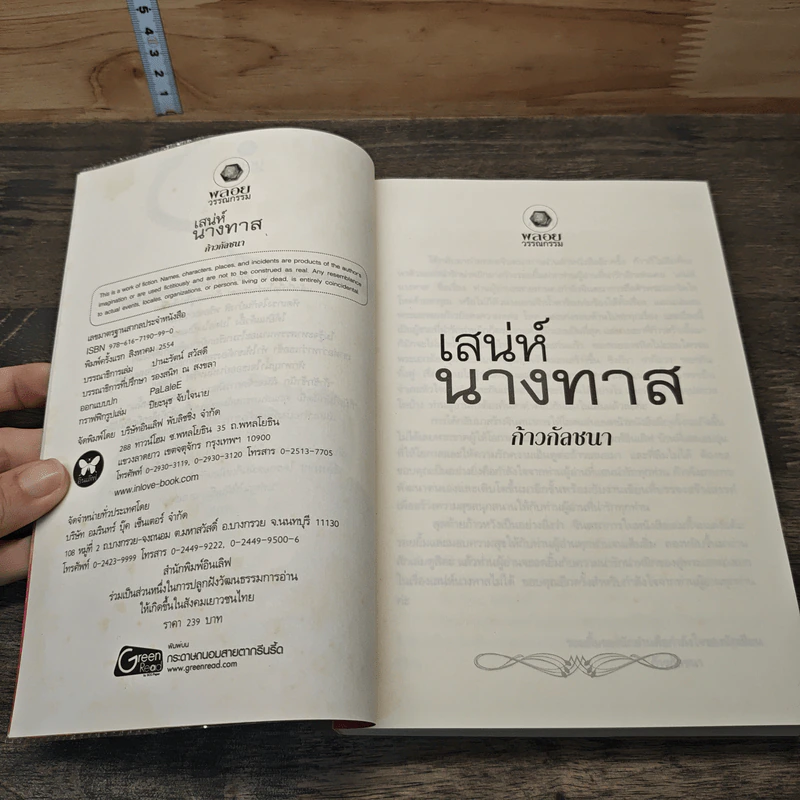 5
4
3
2
1
พลอย
วรรณกรรม
เสน่ห์
นางทาส
ก้าวกัลชนา
This is a work of fiction. Names, characters, places, and incidents are products of the author's
imagination or are used fictitiously and are not to be construed as real. Any resemblance
to actual events, locales, organizations, or persons, living or dead, is entirely coincidental.
เลขมาตรฐานสากลประจำหนังสือ
ISBN 978-616-7190-99-0
พิมพ์ครั้งแรก สิงหาคม 2554
บรรณาธิการเล่ม ปานะรัตน์ สวัสดี
บรรณาธิการที่ปรึกษา รองสนิท ณ สงขลา
ออกแบบปก PaLaleE
กราฟฟิกรูปเล่ม ปิยะนุช จับใจนาย
จัดพิมพ์โดย บริษัทอินเลิฟ พับลิชชิ่ง จำกัด
288 ทาวน์โฮม ซ.พหลโยธิน 35 ถ.พหลโยธิน
แขวงลาดยาว เขตจตุจักร กรุงเทพฯ 10900
โทรศัพท์ 0-2930-3119, 0-2930-3120 โทรสาร 0-2513-7705
www.inlove-book.com
จัดจำหน่ายทั่วประเทศโดย
บริษัท อมรินทร์ บุ๊ค เซ็นเตอร์ จำกัด
108 หมู่ที่ 2 ถ.บางกรวย-จงถนอม ต.มหาสวัสดิ์ อ.บางกรวย จ.นนทบุรี 11130
โทรศัพท์ 0-2423-9999 โทรสาร 0-2449-9222, 0-2449-9500-6
สำนักพิมพ์อินเลิฟ
ร่วมเป็นส่วนหนึ่งในการปลูกฝังวัฒนธรรมการอ่าน
ให้เกิดขึ้นในสังคมเยาวชนไทย
ราคา 239 บาท
Green
Read
พิมพ์บน
กระดาษถนอมสายตากรีนรี้ด
www.greenread.com
พลอย
วรรณกรรม
เสน่ห์
นางทาส
ก้าวกัลชนา